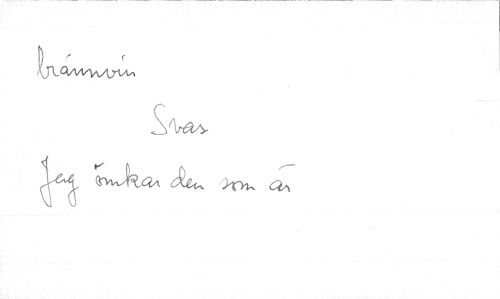 brännvin
Svas
Jag ömkar den som är